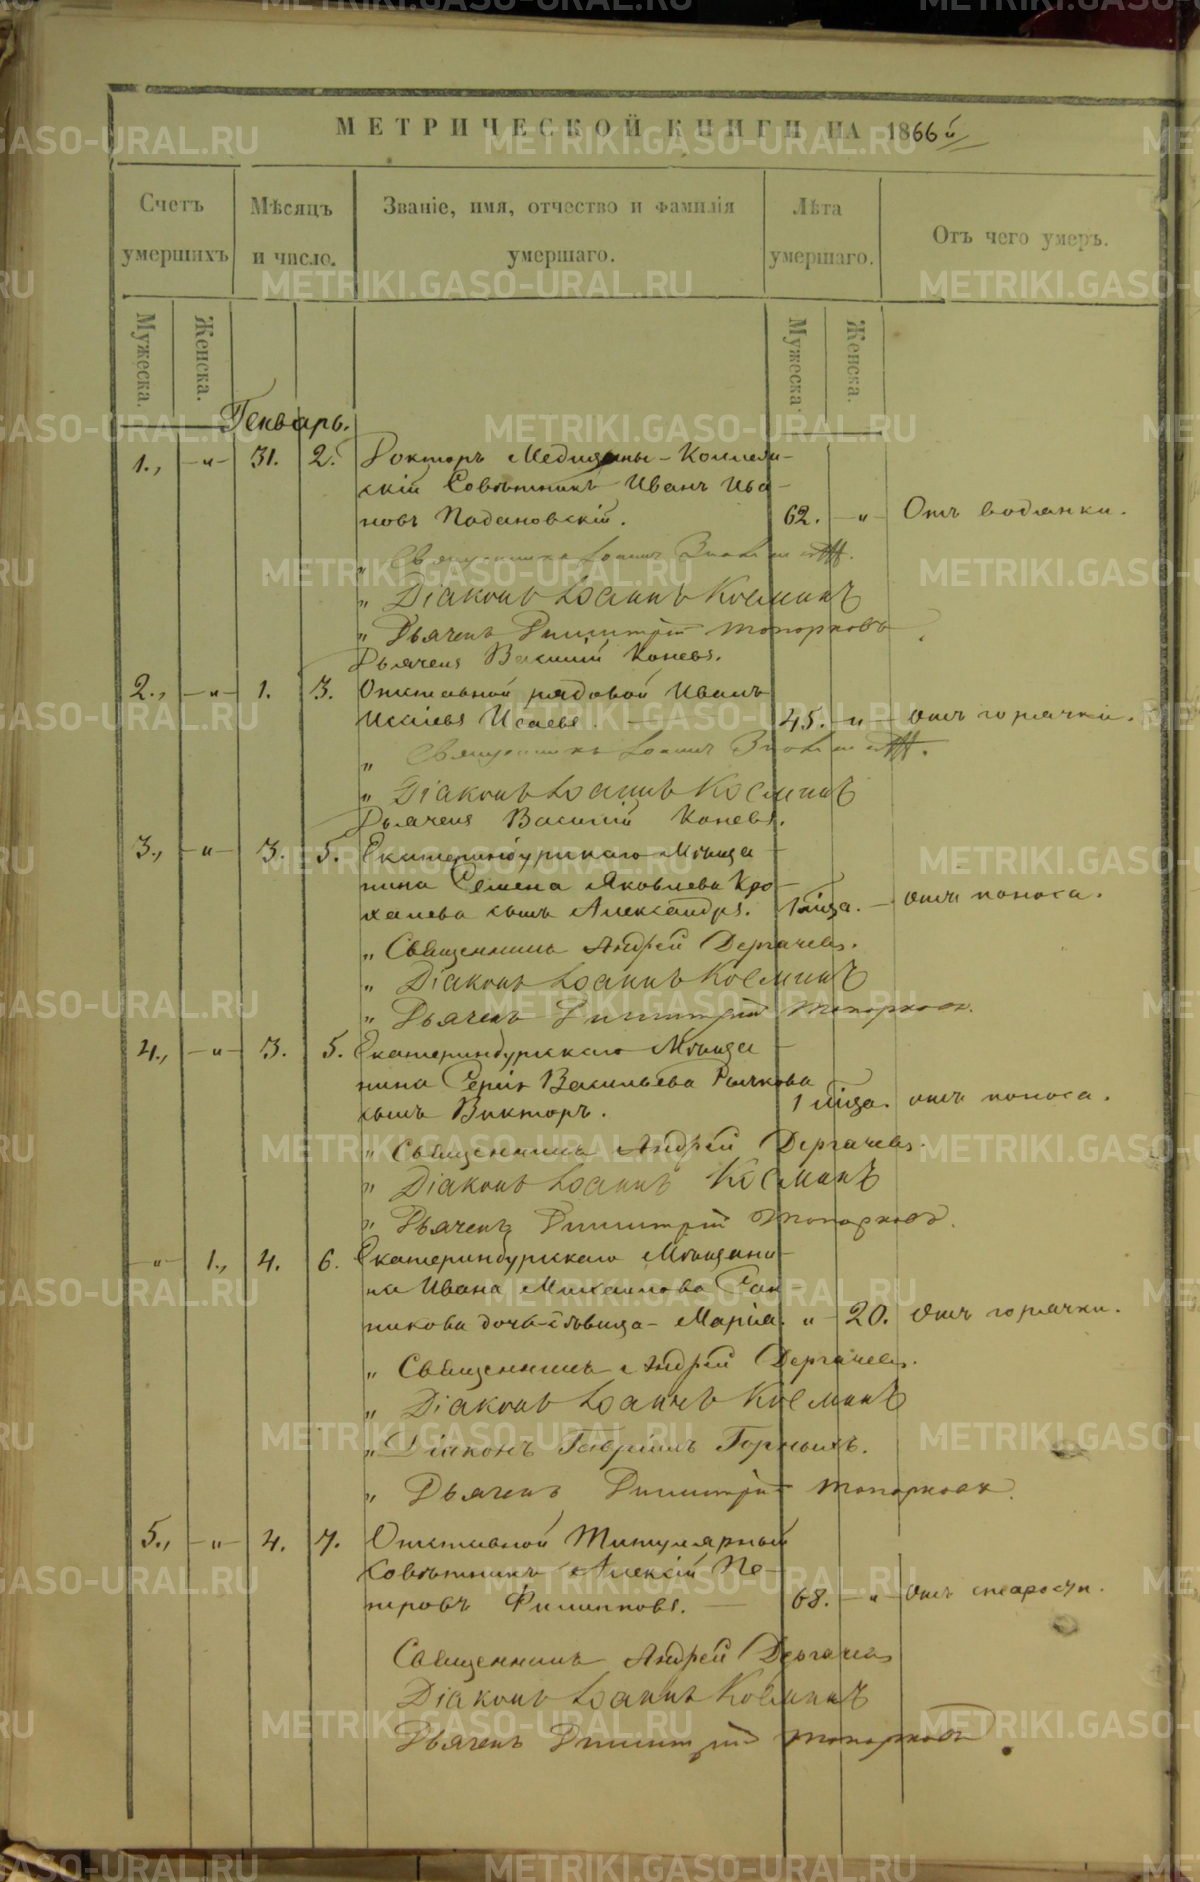 МЕТРИЧЕСКОЙ КНИГИ НА 1866й
Счетъ умершихъ
Мѣсяцъ и число.
Званіе, имя, отчество и фамилія умершаго.
Лѣта умершаго.
Отъ чего умеръ.
Мужеска. Женска. Мужеска. Женска.
Генварь.
1., –„– 31. 2. Докторъ Медицины – Коллеж-
скій Совѣтникъ Иванъ Ива-
новъ Падановскій. 62. –„– Отъ водянки.
„ Священникъ Іоаннъ
„ Діаконъ Іоаннъ Косминъ
„ Дьячекъ Димитрій Топорковъ
Дьячекъ Василій Коневъ.
2., –„– 1. 3. Отставной рядовой Иванъ
Исаіевъ Исаевъ. 45. –„– отъ горячки.
„ Священникъ Іоаннъ
„ Діаконъ Іоаннъ Косминъ
Дьячекъ Василій Коневъ.
3., –„– 3. 5. Екатеринбургскаго Мѣща-
нина Семена Яковлева Кро-
халева сынъ Александръ. 1 мца. – отъ поноса.
„ Священникъ Андрей Дергачевъ.
„ Діаконъ Іоаннъ Косминъ
„ Дьячекъ Димитрій Топорковъ.
4., –„– 3. 5. Екатеринбургскаго Мѣща-
нина Сергія Васильева Рычкова
сынъ Викторъ. 1 мца. отъ поноса.
„ Священникъ Андрей Дергачевъ.
„ Діаконъ Іоаннъ Косминъ
„ Дьячекъ Димитрій Топорковъ.
–„– 1., 4. 6. Екатеринбургскаго Мѣщани-
на Ивана Михаилова
никова дочь дѣвица – Марія. „ 20. Отъ горячки.
„ Священникъ Андрей Дергачевъ.
„ Діаконъ Іоаннъ Косминъ
„ Діаконъ Гавріилъ Горныхъ.
„ Дьячекъ Димитрій Топорковъ.
5., –„– 4. 7. Отставной Титулярный
Совѣтникъ Алексій Пе-
тровъ Филипповъ. 68. –„– Отъ старости.
Священникъ Андрей Дергачевъ
Діаконъ Іоаннъ Косминъ
Дьячекъ Димитрій Топорковъ.
METRIKI.GASO-URAL.RU